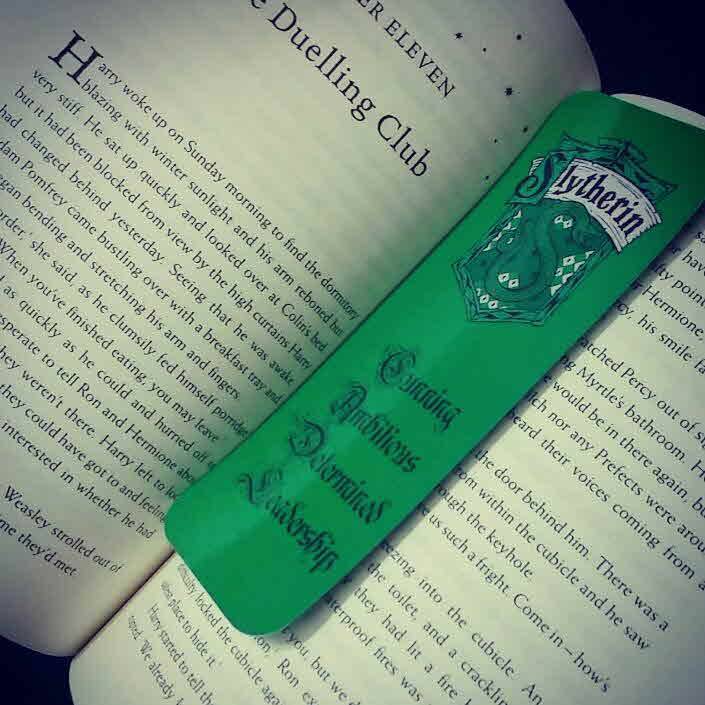 ER ELEVEN
e Duelling Club
Harry woke up on Sunday morning to find the dormitory
blazing with winter sunlight and his arm reboned but
very stiff. He sat up quickly and looked over at Colin's bed
but it had been blocked from view by the high curtains Harry
had changed behind yesterday. Seeing that he was awake
dam Pomfrey came bustling over with a breakfast tray and
gan bending and stretching his arm and fingers
order,' she said, as he clumsily fed himself porridge
When you've finished eating, you may leave
as quickly as he could and hurried off
sperate to tell Ron and Hermione abo
hey weren't there. Harry left to
they could have got to and feeling
interested in whether he had
Weasley strolled out of
me they'd met
Slytherin
Cunning
Ambitious
Determined
Leadership
have
ty point
Hermione,
cy, his smile fa
ached Percy out of s
ng Myrtle's bathroom. H
would be in there again, bu
ich nor any Prefects were arou
eard their voices coming from a
the door behind him. There was a
om within the cubicle and he saw
ough the keyhole.
us such a fright. Come in – how's
ezing into the cubicle. An
the toilet, and a cracklin
they had lit a fire
terproof fires was
you, but we d
Ron ex
culty locked the cubicle aga
place to hide it.'
Harry started to tell the
'We already